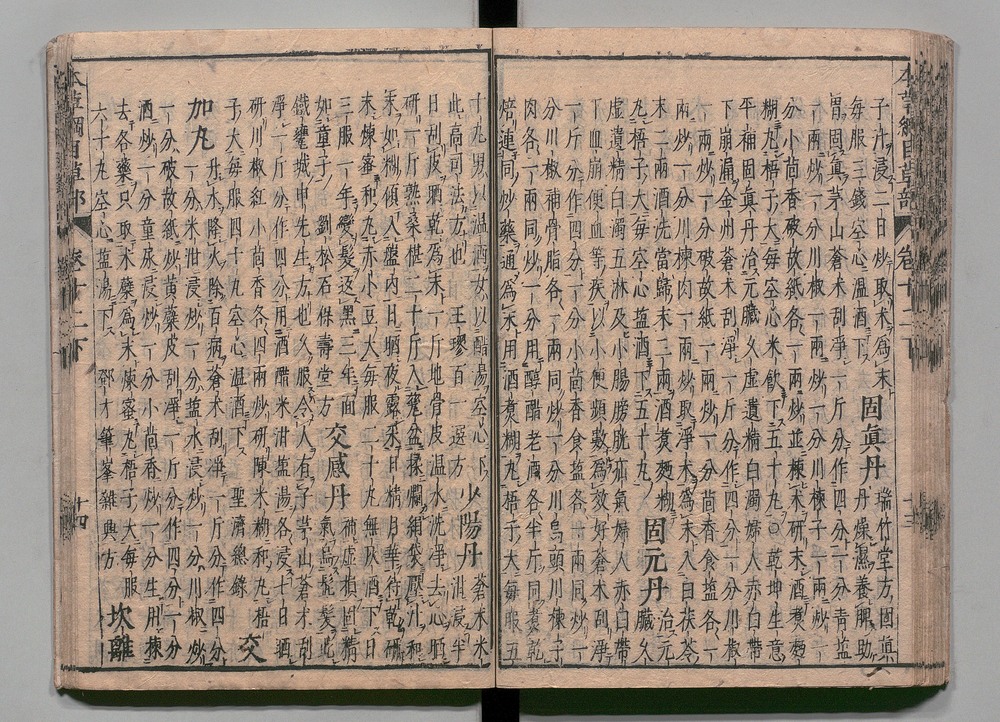 本草綱目草部 卷十二下 十三
子汁浸二日炒取术爲末 固眞丹 瑞竹堂方固眞丹燥濕養脾助
胃固眞茅山蒼术刮淨一斤分作四分一分青鹽
一兩炒一分川椒一兩炒一分川楝子一兩炒一
分小茴香破故紙各一兩炒並楝术研末酒煮麪
糊丸梧子大每空心米飲下五十丸○乾坤生意
平補固眞丹治元臟久虛遺精白濁婦人赤白帶
下崩漏金州蒼术刮淨一斤分作四分一分川椒
一兩炒一分破故紙一兩炒一分茴香食鹽各一
兩炒一分川楝肉一兩炒取淨术爲末入白茯苓
末二兩酒洗當歸末二兩酒煮麪糊
丸梧子大每空心鹽酒下五十丸 固元丹 治元臟久
虛遺精白濁五淋及小腸膀胱疝氣婦人赤白帶
下血崩便血等疾以小便頻數爲效好蒼术刮淨
一斤分作四分一分小茴香食鹽各一兩同炒一
分川椒補骨脂各一兩同炒一分川烏頭川楝子
肉各一兩同炒一分用醇醋老酒各半斤同煮乾
焙連同炒藥通爲末用酒煮糊丸梧子大每服五
十丸男以温酒女以醋湯空心下 少陽丹 蒼术米
此高司法方也王璆百一選方 泔浸半
日刮皮晒乾爲末一斤地骨皮温水洗淨去心晒
研一斤熟桑椹二十斤入瓷盆揉爛絹袋壓汁和
末如糊傾入盤内日晒夜露采日精月華待乾研
末煉蜜和丸赤小豆大每服二十丸無灰酒下日
三服一年變髮返黑三年面
如童子 劉松石保壽堂方 交感丹 補虛損固精
氣烏髭髮此
鐵甕城申先生方也久服令人有子茅山蒼术刮
淨一斤分作四分用酒醋米泔鹽湯各浸七日晒
研川椒紅小茴香各四兩炒研陳米糊和丸梧
子大每服四十丸空心温酒下 聖濟總錄 交
加丸 升水降火除百病蒼术刮淨一斤分作四分
一分米泔浸炒一分鹽水浸炒一分川椒炒
一分破故紙炒黄蘗皮刮淨一斤分作四分一分
酒炒一分童尿浸炒一分小茴香炒一分生用楝
去各藥只取术蘗爲末煉蜜丸梧子大每服
六十丸空心鹽湯下 鄧才筆峯雜興方 坎離
本草綱目草部 卷十二下 十四